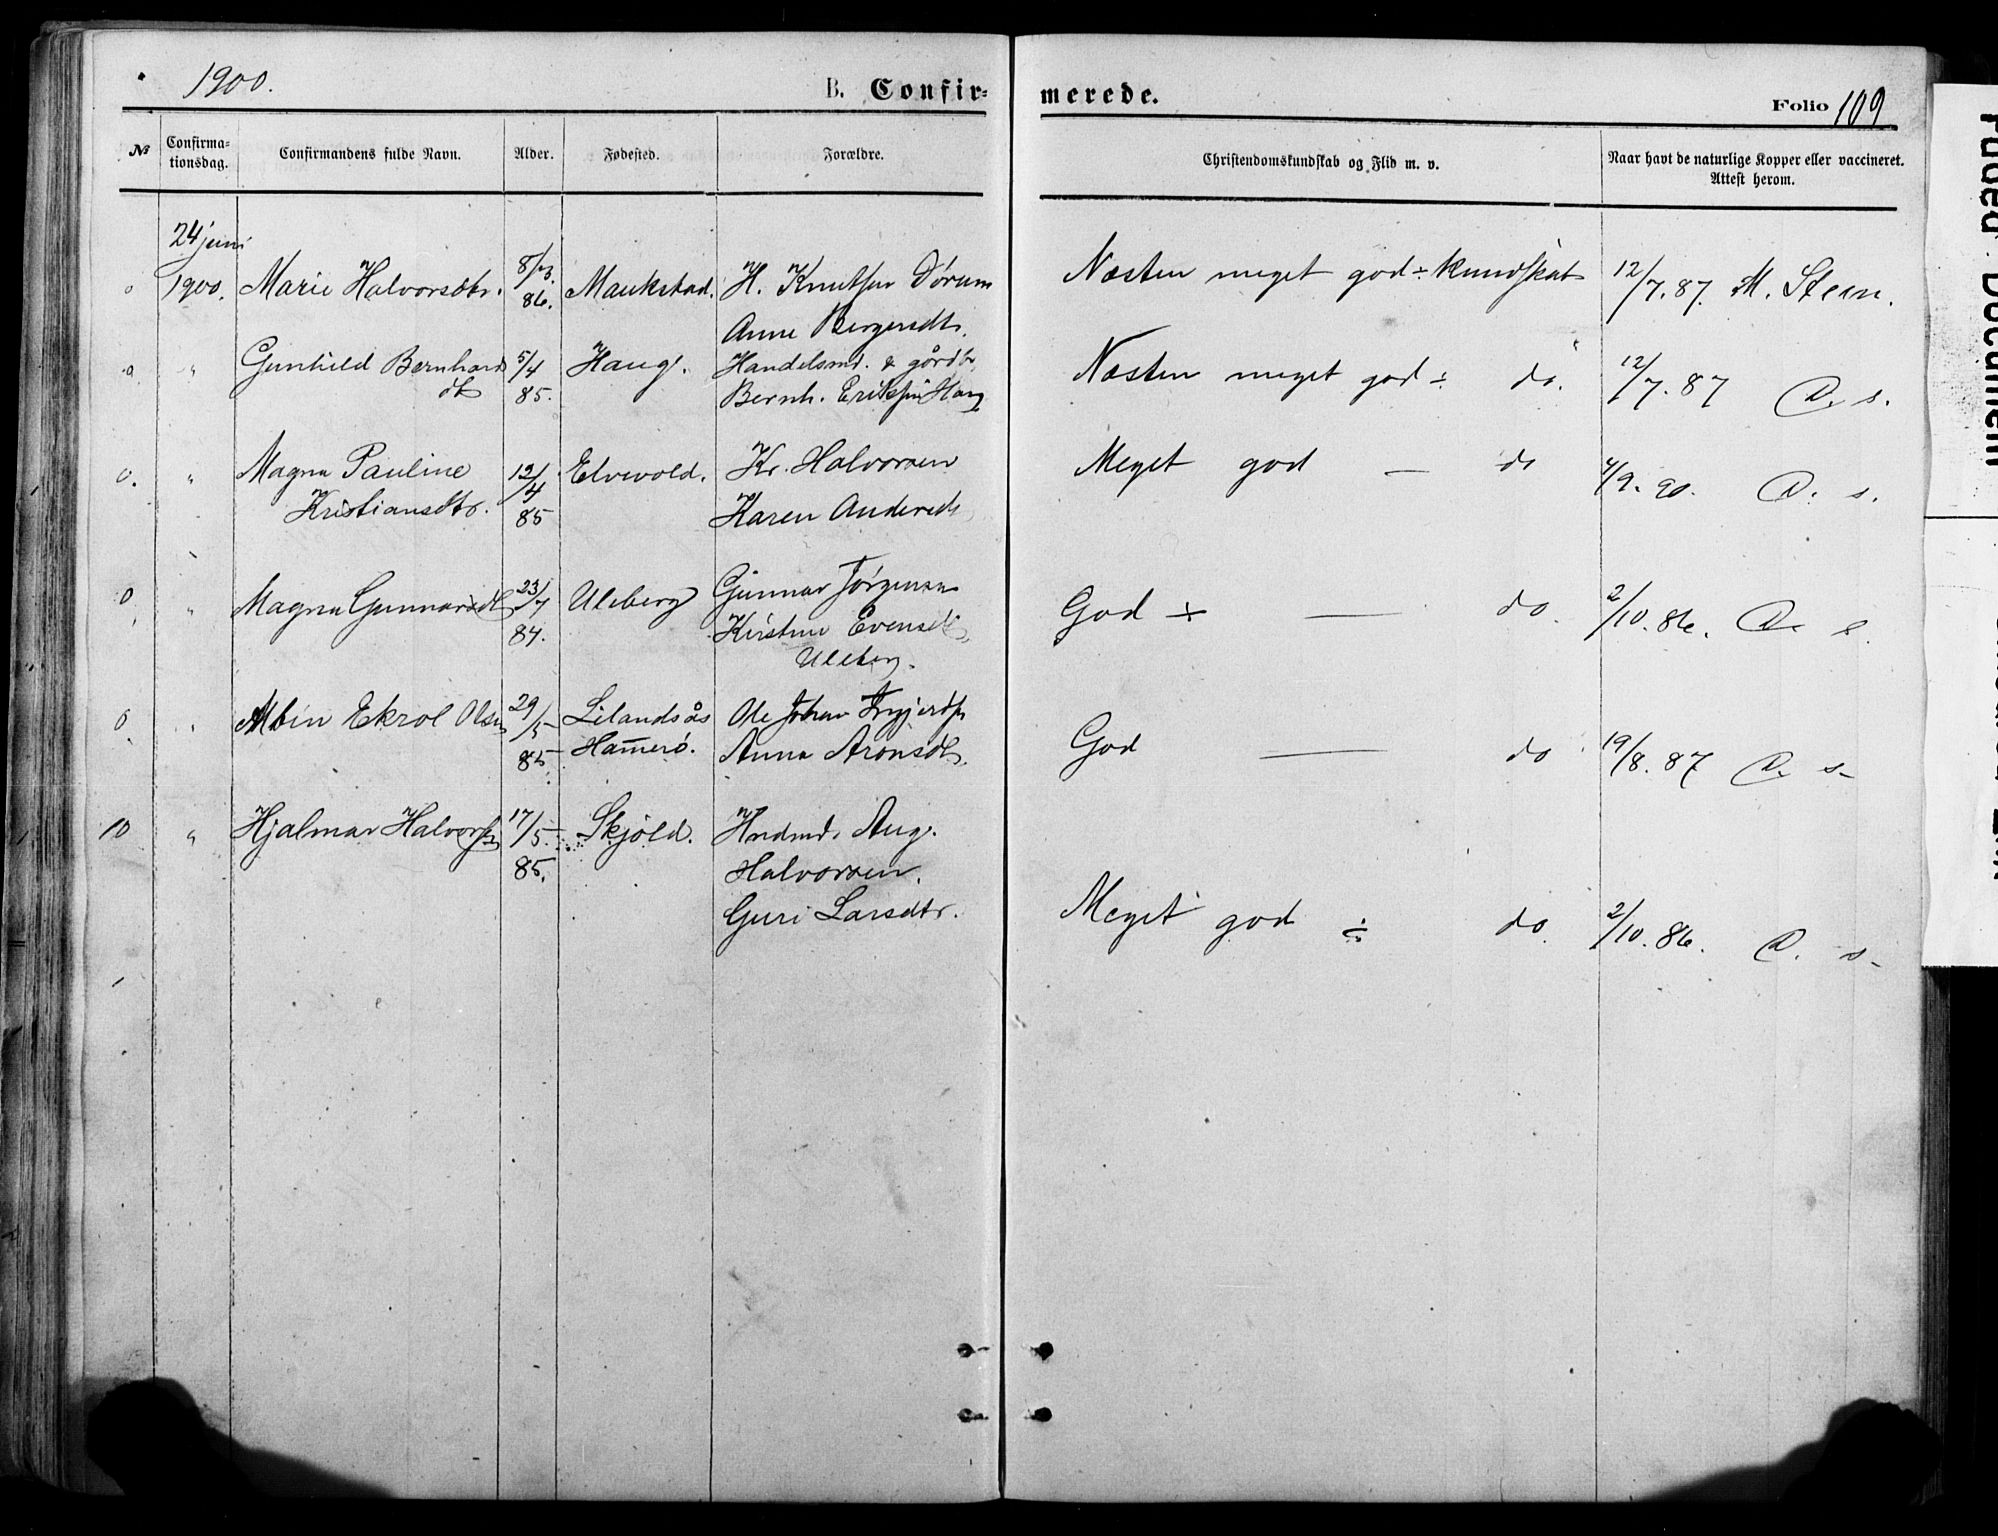 1900.
B. Confir=
merede.
Folio 109
№
Confirma=
tionsdag.
Confirmandens fulde Navn.
Alder.
Fødested.
Forældre.
Christendomskundskab og Flid m. v.
Naar havt de naturlige Kopper eller vaccineret.
Attest herom.
24 juni
1900. Marie Halvorsdtr. 8/3 86. Maukstad. H. Knutsen Dørum
Anne Bergersdtr.
Næsten meget god ÷ kundskab 12/7. 87. M. Steen.
" Gunhild Bernhards
dtr 5/4 85. Haug. Handelsmd. & gårdbr
Bernh. Eriksen Haug
Næsten meget god ÷ do. 12/7. 87 D. s.
0. " Magna Pauline
Kristiansdtr. 12/4 85 Elvevold. Kr. Halvorsen
Karen Andersdtr
Meget god — do 4/9. 90. D. s.
0 " Magna Gunnarsdtr 23/7 84. Uleberg Gunnar Jørgensen
Kirstine Evensdtr
Uleberg.
God ÷ — do. 2/10. 86. D. s.
0 " Albin Ekrol Olsen 29/5 85 Lilandsås
Ham̄erø.
Ole Johan
Anna Aronsdtr.
God — do 19/8. 87 D. s-
10 " Hjalmar Halvorsen 17/5 85. Skjold. Hndmd. Aug.
Halvorsen.
Guri Larsdtr.
Meget god ÷ do. 2/10. 86. D. s-
Faded Document